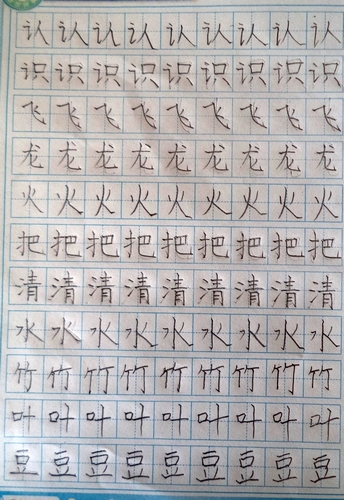 认认认认认认认认认
识识识识识识识识识
飞飞飞飞飞飞飞飞飞
龙龙龙龙龙龙龙龙龙
火火火火火火火火火
把把把把把把把把把
清清清清清清清清清
水水水水水水水水水
竹竹竹竹竹竹竹竹竹
叶叶叶叶叶叶叶叶叶
豆豆豆豆豆豆豆豆豆